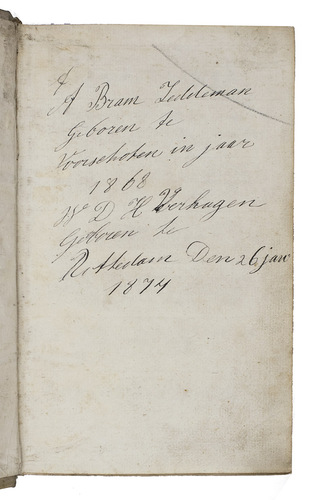 A Bram Zeddeman
Geboren te
Voorschoten in jaar
1868
W D H Verhagen
Geboren te
Rottedam Den 26 jan
1874